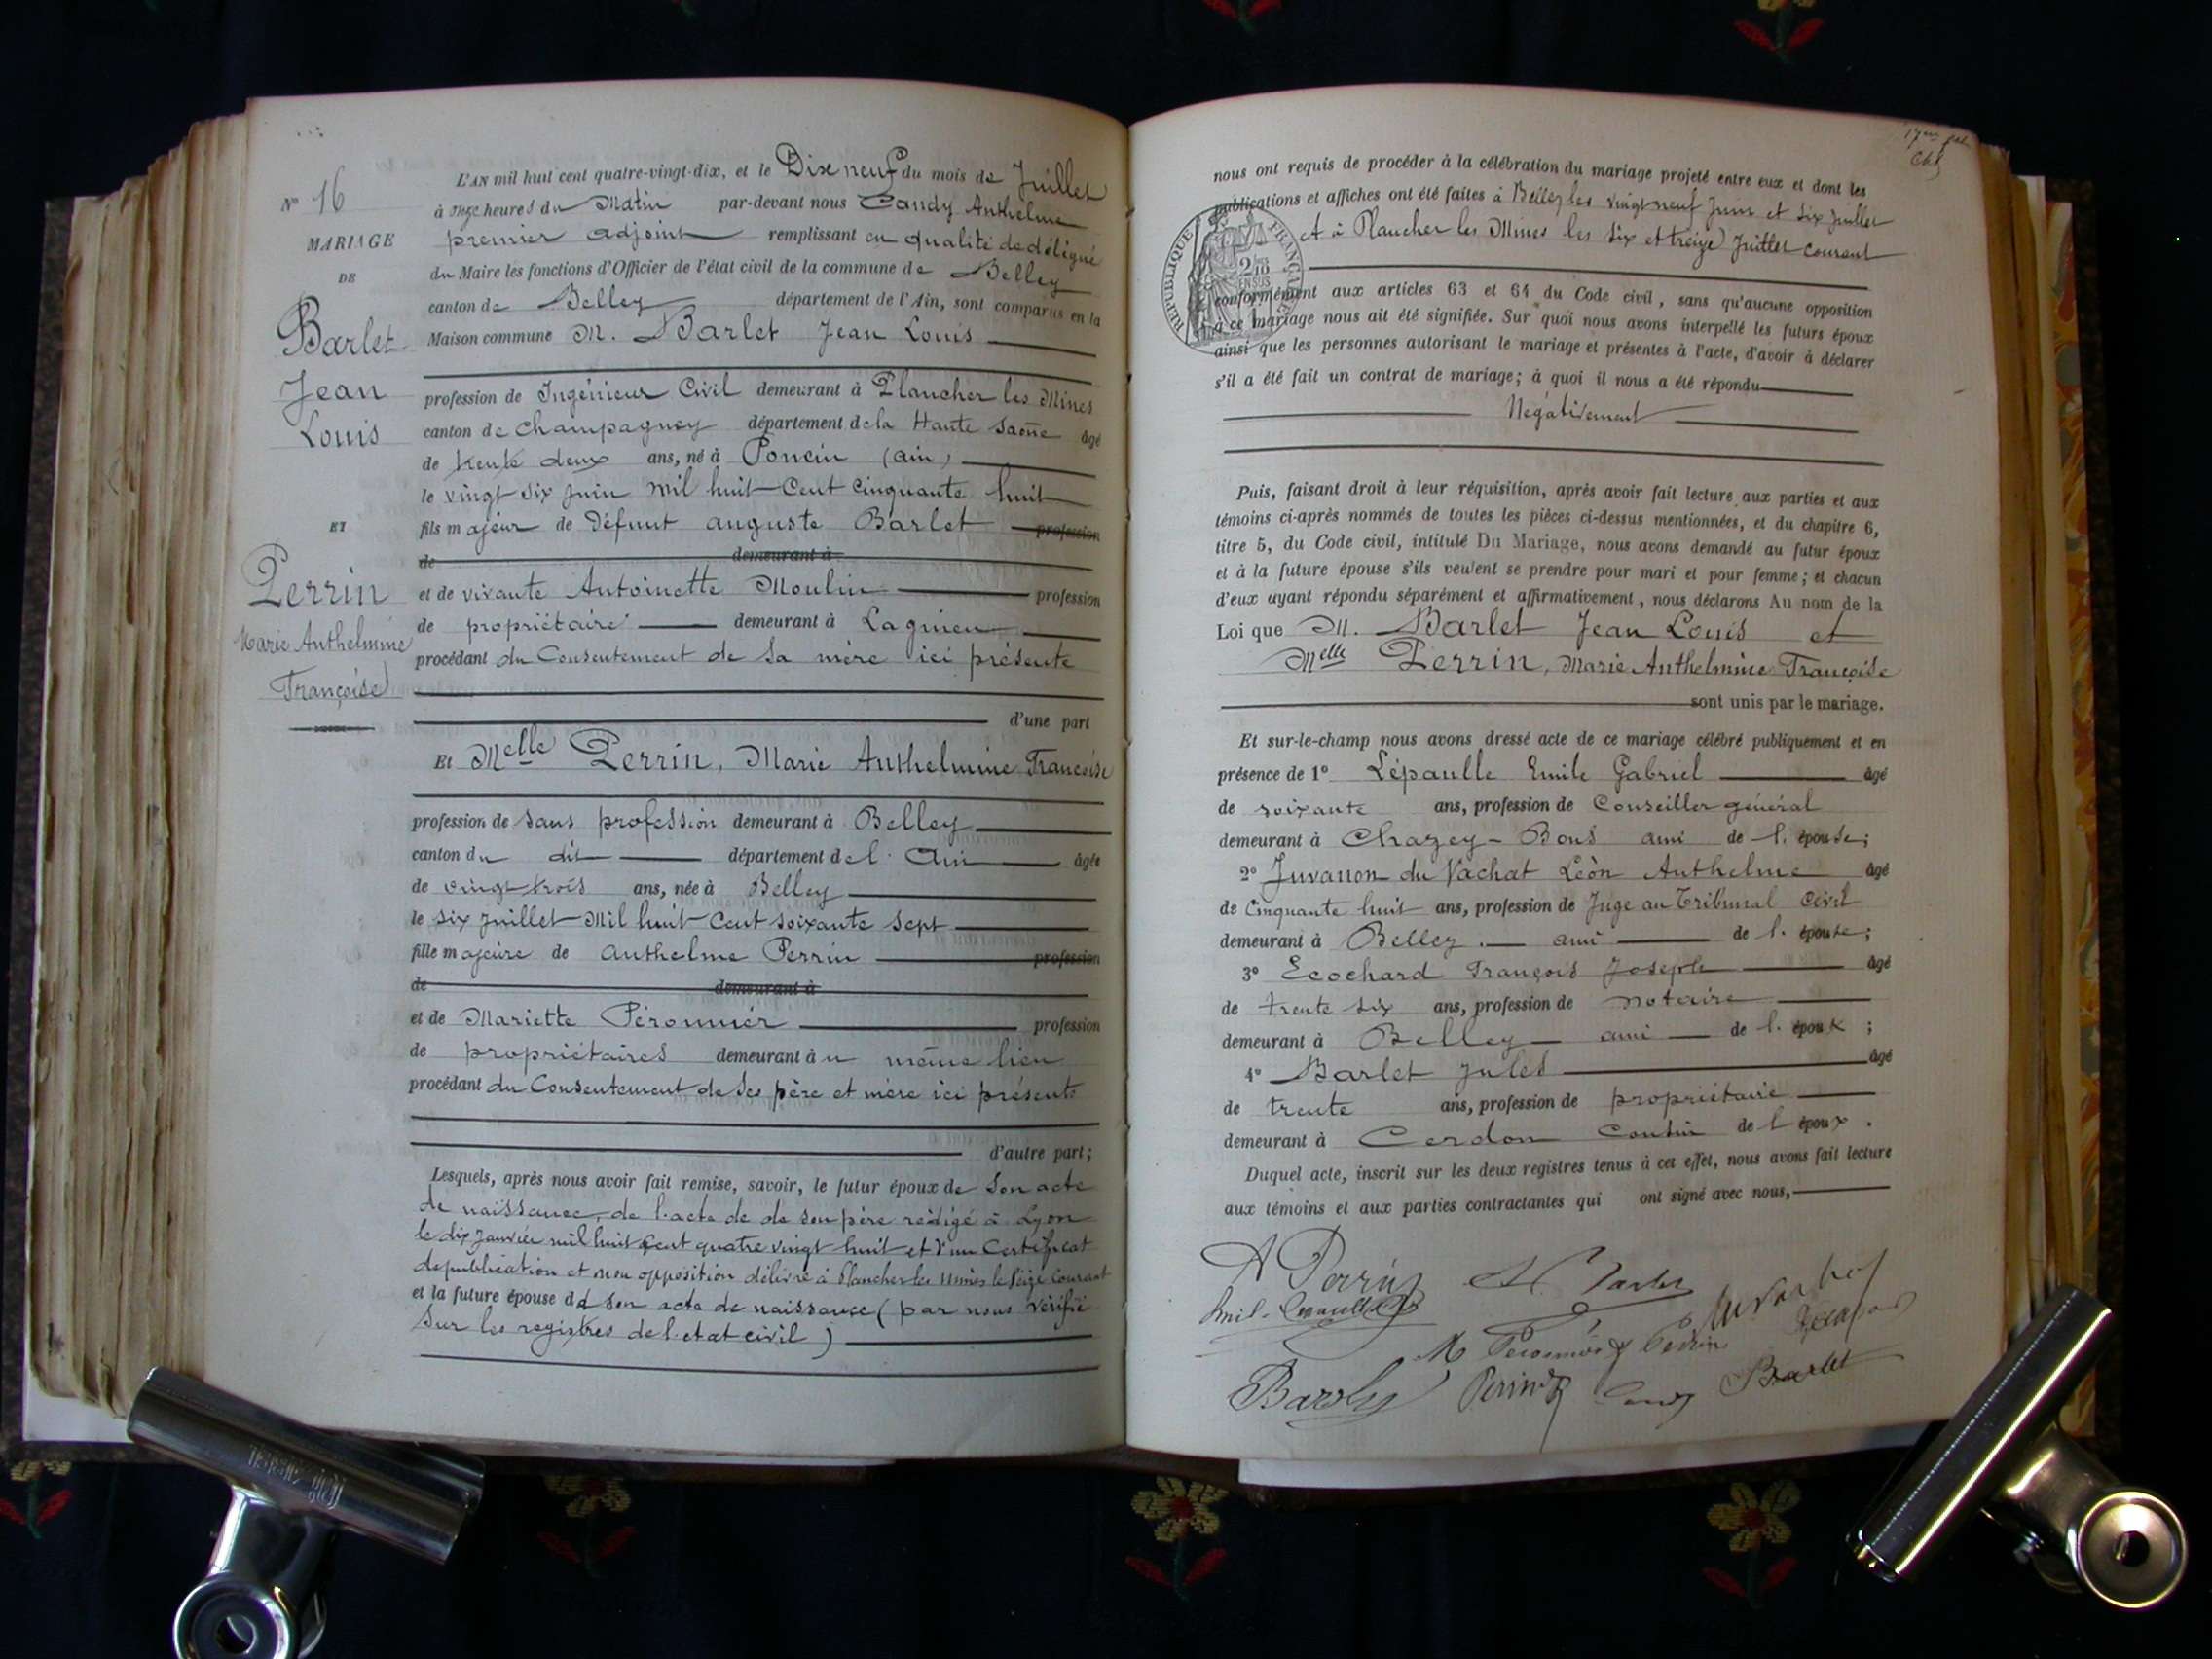 N° 16
MARIAGE
DE
Barlet
Jean
Louis
ET
Perrin
Marie Anthelmine
Françoise
L'AN mil huit cent quatre-vingt-dix, et le Dix neuf du mois de Juillet
à onze heures du Matin par-devant nous Candy Anthelme
premier adjoint remplissant en qualité de délégué
du Maire les fonctions d'Officier de l'état civil de la commune de Belley
canton de Belley département de l'Ain, sont comparus en la
Maison commune M. Barlet Jean Louis
profession de Ingénieur Civil demeurant à Plancher les Mines
canton de Champagney département de la Haute Saône âgé
de trente deux ans, né à Poncin (ain)
le vingt six Juin mil huit Cent Cinquante huit
fils majeur de Défunt auguste Barlet profession
de demeurant à
et de vivante Antoinette Moulin profession
de propriétaire demeurant à Lagnieu
procédant du Consentement de sa mère ici présente
d'une part
Et Melle Perrin, Marie Anthelmine Françoise
profession de sans profession demeurant à Belley
canton du dit département de l'Ain âgée
de vingt trois ans, née à Belley
le six Juillet Mil huit Cent soixante sept
fille majeure de Anthelme Perrin profession
de demeurant à
et de Mariette Péronnier profession
de propriétaires demeurant à u même lieu
procédant du Consentement de ses père et mère ici présents
d'autre part;
Lesquels, après nous avoir fait remise, savoir, le futur époux de Son acte
de naissance, de l'acte de de son père rédigé à Lyon
le dix Janvier mil huit Cent quatre vingt huit et d'un Certificat
de publication et non opposition délivré à Plancher les Mines le Seize Courant
et la future épouse de son acte de naissance (par nous vérifié
Sur les registres de l'etat civil)
nous ont requis de procéder à la célébration du mariage projeté entre eux et dont les
publications et affiches ont été faites à Belley les vingt neuf Juin et six Juillet
et à Plancher les Mines les six et treize Juillet courant
RÉPUBLIQUE FRANÇAISE
conformément aux articles 63 et 64 du Code civil, sans qu'aucune opposition
à ce mariage nous ait été signifiée. Sur quoi nous avons interpellé les futurs époux
ainsi que les personnes autorisant le mariage et présentes à l'acte, d'avoir à déclarer
s'il a été fait un contrat de mariage; à quoi il nous a été répondu
Négativement
Puis, faisant droit à leur réquisition, après avoir fait lecture aux parties et aux
témoins ci-après nommés de toutes les pièces ci-dessus mentionnées, et du chapitre 6,
titre 5, du Code civil, intitulé Du Mariage, nous avons demandé au futur époux
et à la future épouse s'ils veulent se prendre pour mari et pour femme; et chacun
d'eux ayant répondu séparément et affirmativement, nous déclarons Au nom de la
Loi que M. Barlet Jean Louis et
Melle Perrin, Marie Anthelmine Françoise
sont unis par le mariage.
Et sur-le-champ nous avons dressé acte de ce mariage célébré publiquement et en
présence de 1° Lépaulle Emile Gabriel âgé
de soixante ans, profession de Conseiller général
demeurant à Chazey-Bons ami de l'épouse;
2° Juvanon du Vachat Léon Anthelme âgé
de Cinquante huit ans, profession de Juge au Tribunal Civil
demeurant à Belley. ami de l'épouse;
3° Ecochard François Joseph âgé
de trente six ans, profession de notaire
demeurant à Belley ami de l'époux;
4° Barlet Jules âgé
de trente ans, profession de propriétaire
demeurant à Cerdon Cousin de l'époux.
Duquel acte, inscrit sur les deux registres tenus à cet effet, nous avons fait lecture
aux témoins et aux parties contractantes qui ont signé avec nous,
A Perrin
Barlet